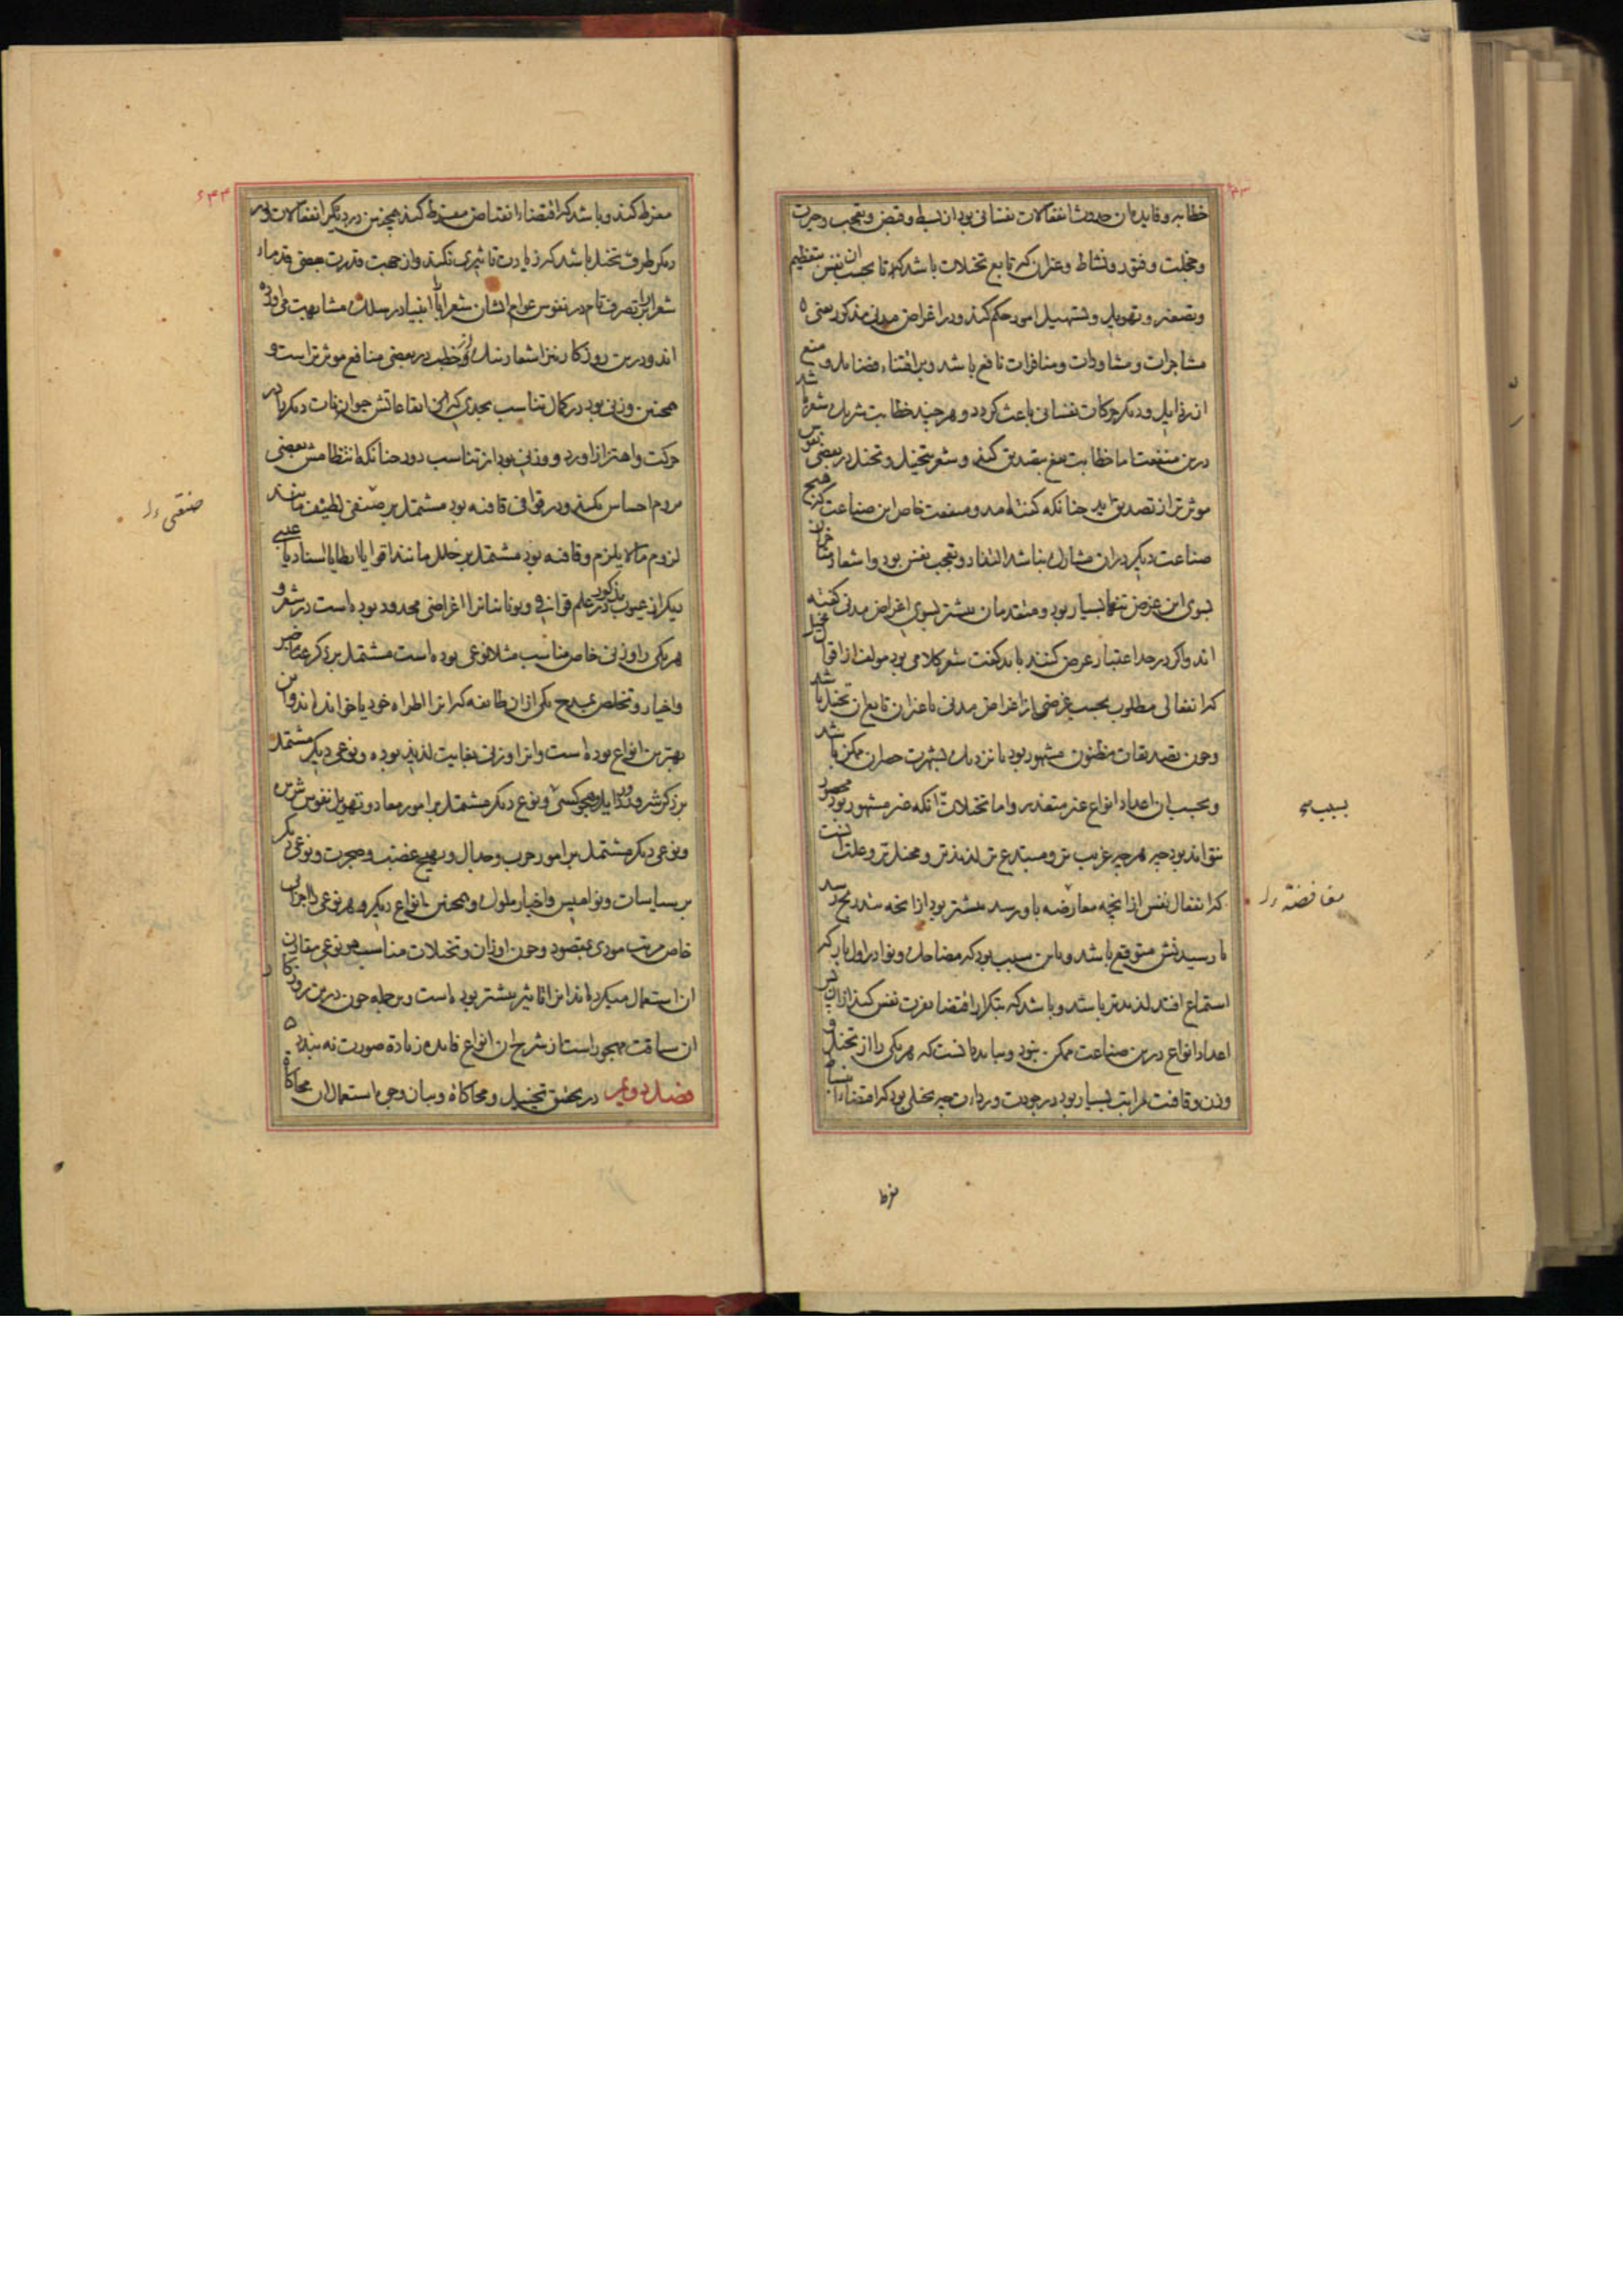 خطابه و فایده آن حدوث انفعالات نفسانی بود از بسط و قبض و تعجب و حیرت
و خجلت و فتور و نشاط و غیر آن که تابع تخیلات باشد که تا بحسب آن نفس بتعظیم
و تصغیر و تهویل و تسهیل امور حکم کند و در اغراض مدنی مذکور یعنی
مشاجرات و مشاورات و منافرات نافع باشد و بر اقتناء فضایل و منع
از رذایل و دیگر حرکات نفسانی باعث گردد و هر چند خطابت شریک شعر باشد
درین منفعت اما خطابت بتصدیق کند و شعر بتخییل و تخیل در بعضی نفوس
موثرتر از تصدیق آید چنانکه گفته آمد و منفعت خاص این صناعت که هیچ
صناعت دیگر در آن مشارک نباشد التذاذ و تعجب نفس بود و اشعار متأخران
بسوی این غرض تنها بسیار بود و متقدمان بیشتر بسوی اغراض مدنی گفته
اند و اگر در حد اعتبار عرض کنند باید گفت شعر کلامی بود مولف از اقوال مخیل
که انفعالی مطلوب بحسب غرضی از اغراض مدنی یا غیر آن تابع آن تخیل باشد
و چون تصدیقات مظنون مشهور بود یا نزدیک بشهرت حصر آن ممکن باشد
و بحسب آن اعداد انواع غیر متعذر و اما تخیلات آنکه غیر مشهور بود محصور
نتواند بود چه هر چه غریب تر و مبتدع تر لذیذتر و مخیل تر و علت آنست
که انفعال نفس از آنچه معارضه باو رسد بیشتر بود از آنچه بتدریج رسد
یا رسیدنش متوقع باشد و باین سبب بود که مضاحک و نوادر اول بار که
استماع افتد لذیذتر باشد و باشد که بتکرار اقتضاء نفرت نفس کند از آن پس
اعداد انواع درین صناعت ممکن نبود و بباید دانست که هر یکی را از تخیل و
وزن و قافیت مراتب بسیار بود در جودت و رداءت چه مخیلی بود که اقتضاء انبساط
سببه
مفافضة ول
مفرط
۶۴۴
مفرط کند و باشد که اقتضاء انقباض مفرط کند همچنین در دیگر انفعالات و در
دیگر طرف تخیل باشد که زیادت تاثیری نکند و از جهت قدرت بعضی قدماء
شعرا بر تصرف تام در نفوس عوام ایشان شعرا را با انبیا در سلک مشابهت می آورده
اند و درین روزگار نیز اشعار نیک از خطب در بعضی منافع موثرتر است و
همچنین وزنی بود در کمال تناسب بحدی که این ایقاعاتش حیوانات دیگر را در
حرکت و اهتزاز آورد و وزنی بود از تناسب دور چنانکه انتظامش بعضی
مردم احساس نکنند و در قوافی قافیه بود مشتمل بر صنفی لطیف مانند
لزوم ما لا یلزم و قافیه بود مشتمل بر خلل مانند اقوا یا ایطا یا اسناد یا عیبی
دیگر از عیوب مذکور در علم قوافی و یونانیان را اغراضی محدود بوده است در شعر و
هر یکی را وزنی خاص مناسب مثلا نوعی بوده است مشتمل بر ذکر خیر
و اخیار و تخلص بمدح یکی از آن طایفه که آنرا اطراه خود یا خوانده اند و این
بهترین انواع بوده است و آنرا وزنی بغایت لذیذ بوده و نوعی دیگر مشتمل
بر ذکر شرور و رذایل و هجو کسی و نوع دیگر مشتمل بر امور معاد و تهویل نفوس شریر
و نوعی دیگر مشتمل بر امور حرب و جدال و تهییج غضب و ضجرت و نوعی دیگر
بر سیاسات و نوامیس و اخبار ملوک و همچنین انواع دیگر و هر نوعی را اجزائی
خاص مرتب مودی بمقصود و چون اوزان و تخیلات مناسب هر نوعی مقارن
آن استعمال میکرده اند آنرا تاثیر بیشتر بوده است و بر جمله چون درین روزگار
آن سیاقت مهجور است از شرح آن انواع فایده زیادة صورت نه بندد
فصل دویم در تحقیق تخییل و محاکاة و بیان وجوه استعمال آن محاکاة
صنفی ول